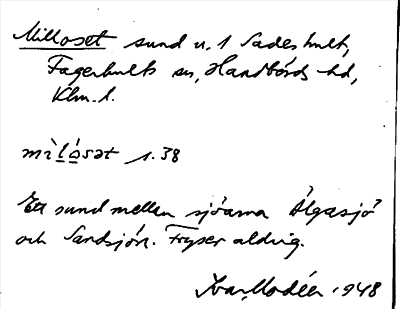 Milloset sund u. 1 Sadeshult,
Fagerhults sn, Handbörds hd,
Klm. l.
mìlósət 1.38
Ett sund mellan sjöarna Älgasjö
och Sandsjön. Fryser aldrig.
Ivar Modéer 1948